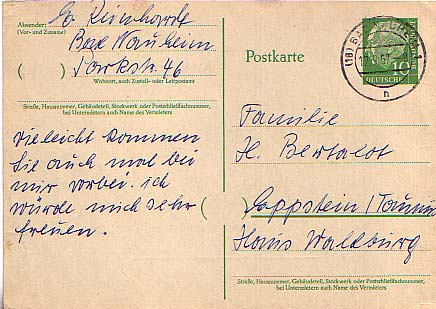 Absender:
(Vor- und Zuname)
Bad Nauheim
Parkstr. 46
Wohnort, auch Zustell- oder Leitpostamt
Straße, Hausnummer, Gebäudeteil, Stockwerk oder Postschließfachnummer,
bei Untermietern auch Name des Vermieters
Vielleicht kommen
Sie auch mal bei
mir vorbei. ich
würde mich sehr
freuen.
Postkarte
DEUTSCHE
10
(16)
n
Familie
H. Bertaldt
Eppstein / Taunus
Haus Waldburg
Straße, Hausnummer, Gebäudeteil, Stockwerk oder Postschließfachnummer,
bei Untermietern auch Name des Vermieters